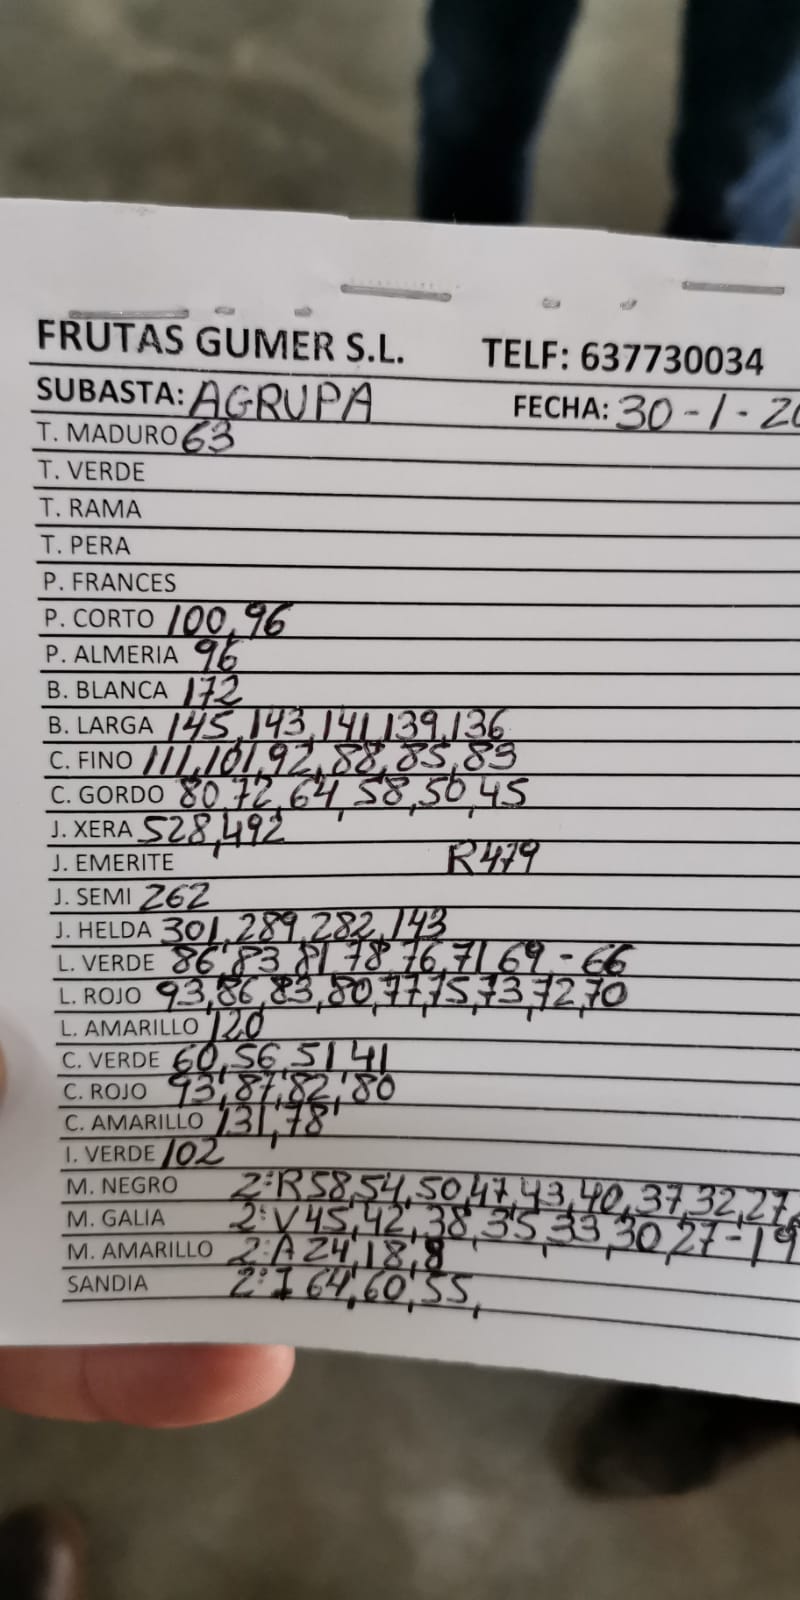 FRUTAS GUMER S.L. TELF: 637730034
SUBASTA: AGRUPA FECHA: 30-1-20
T. MADURO 63
T. VERDE
T. RAMA
T. PERA
P. FRANCES
P. CORTO 100,96
P. ALMERIA 96
B. BLANCA 172
B. LARGA 145,143,141,139,136
C. FINO 111,101,92,88,85,83
C. GORDO 80,72,64,58,50,45
J. XERA 528,492
J. EMERITE R479
J. SEMI 262
J. HELDA 301,289,282,143
L. VERDE 86,83,81,78,76,71,69,-66
L. ROJO 93,86,83,80,77,75,73,72,70
L. AMARILLO 120
C. VERDE 60,56,51,41
C. ROJO 93,87,82,80
C. AMARILLO 131,78
I. VERDE 102
M. NEGRO 2ªR 58,54,50,47,43,40,37,32,27,
M. GALIA 2ªV 45,42,38,35,33,30,27-19
M. AMARILLO 2ªA 24,18,8
SANDIA 2ªI 64,60,55,